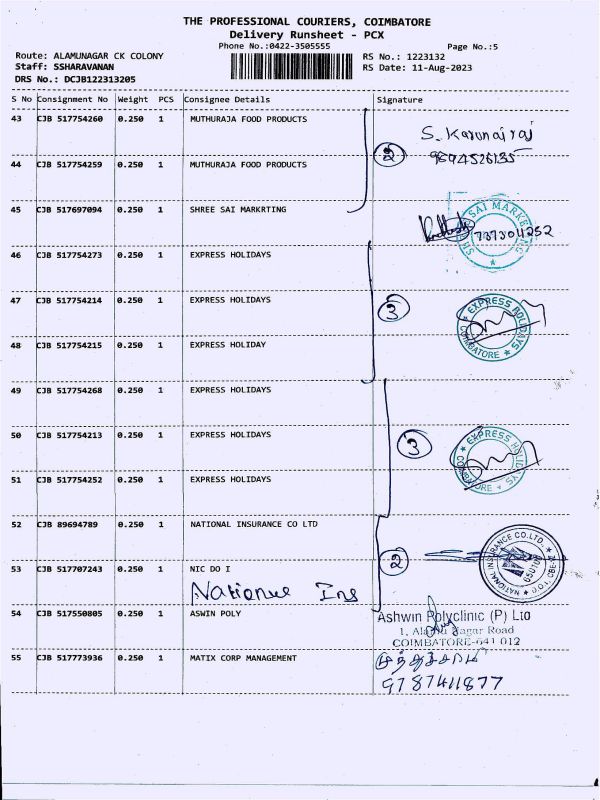 THE PROFESSIONAL COURIERS, COIMBATORE
Delivery Runsheet - PCX
Phone No.:0422-3505555
Page No.:5
Route: ALAMUNAGAR CK COLONY
RS No.: 1223132
Staff: SSHARAVANAN
RS Date: 11-Aug-2023
DRS No.: DCJB122313205
S No Consignment No Weight PCS Consignee Details Signature
43 CJB 517754260 0.250 1 MUTHURAJA FOOD PRODUCTS
S. Karunairaj
2
44 CJB 517754259 0.250 1 MUTHURAJA FOOD PRODUCTS
45 CJB 517697094 0.250 1 SHREE SAI MARKRTING
SAI MARKETING
46 CJB 517754273 0.250 1 EXPRESS HOLIDAYS
47 CJB 517754214 0.250 1 EXPRESS HOLIDAYS
3
EXPRESS HOLIDAYS
COIMBATORE
48 CJB 517754215 0.250 1 EXPRESS HOLIDAY
49 CJB 517754268 0.250 1 EXPRESS HOLIDAYS
50 CJB 517754213 0.250 1 EXPRESS HOLIDAYS
3
EXPRESS HOLIDAYS
51 CJB 517754252 0.250 1 EXPRESS HOLIDAYS
52 CJB 89694789 0.250 1 NATIONAL INSURANCE CO LTD
53 CJB 517707243 0.250 1 NIC DO I
2
NATIONAL INSURANCE CO.LTD.
Nationue Ins
54 CJB 517550805 0.250 1 ASWIN POLY
Ashwin Polyclinic (P) Ltd
1, Alamu Nagar Road
COIMBATORE-641 012
55 CJB 517773936 0.250 1 MATIX CORP MANAGEMENT
9787411877